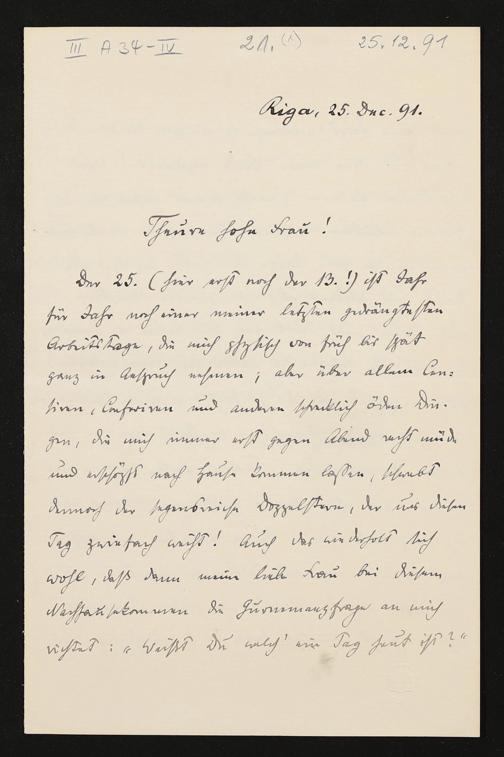 III A 34-IV 21. (1) 25.12.91
Riga, 25. Dec. 91.
Theure hohe Frau!
Der 25. (hier erst noch der 13.!) ist Jahr
für Jahr noch einer meiner letzten gedrängtesten
Arbeitstage, die mich physisch von früh bis spät
ganz in Anspruch nehmen; aber über allem Cen-
siren, Conferiren und anderen schrecklich öden Din-
gen, die mich immer erst gegen Abend recht müde
und erschöpft nach Hause kommen lassen, schwebt
dennoch der segensreiche Doppelstern, der uns diesen
Tag zwiefach weiht! Auch das wiederholt sich
wohl, daß dann meine liebe Frau bei diesem
Nachhausekommen die Gurnemanzfrage an mich
richtet: „Weißt Du welch' ein Tag heut ist?"